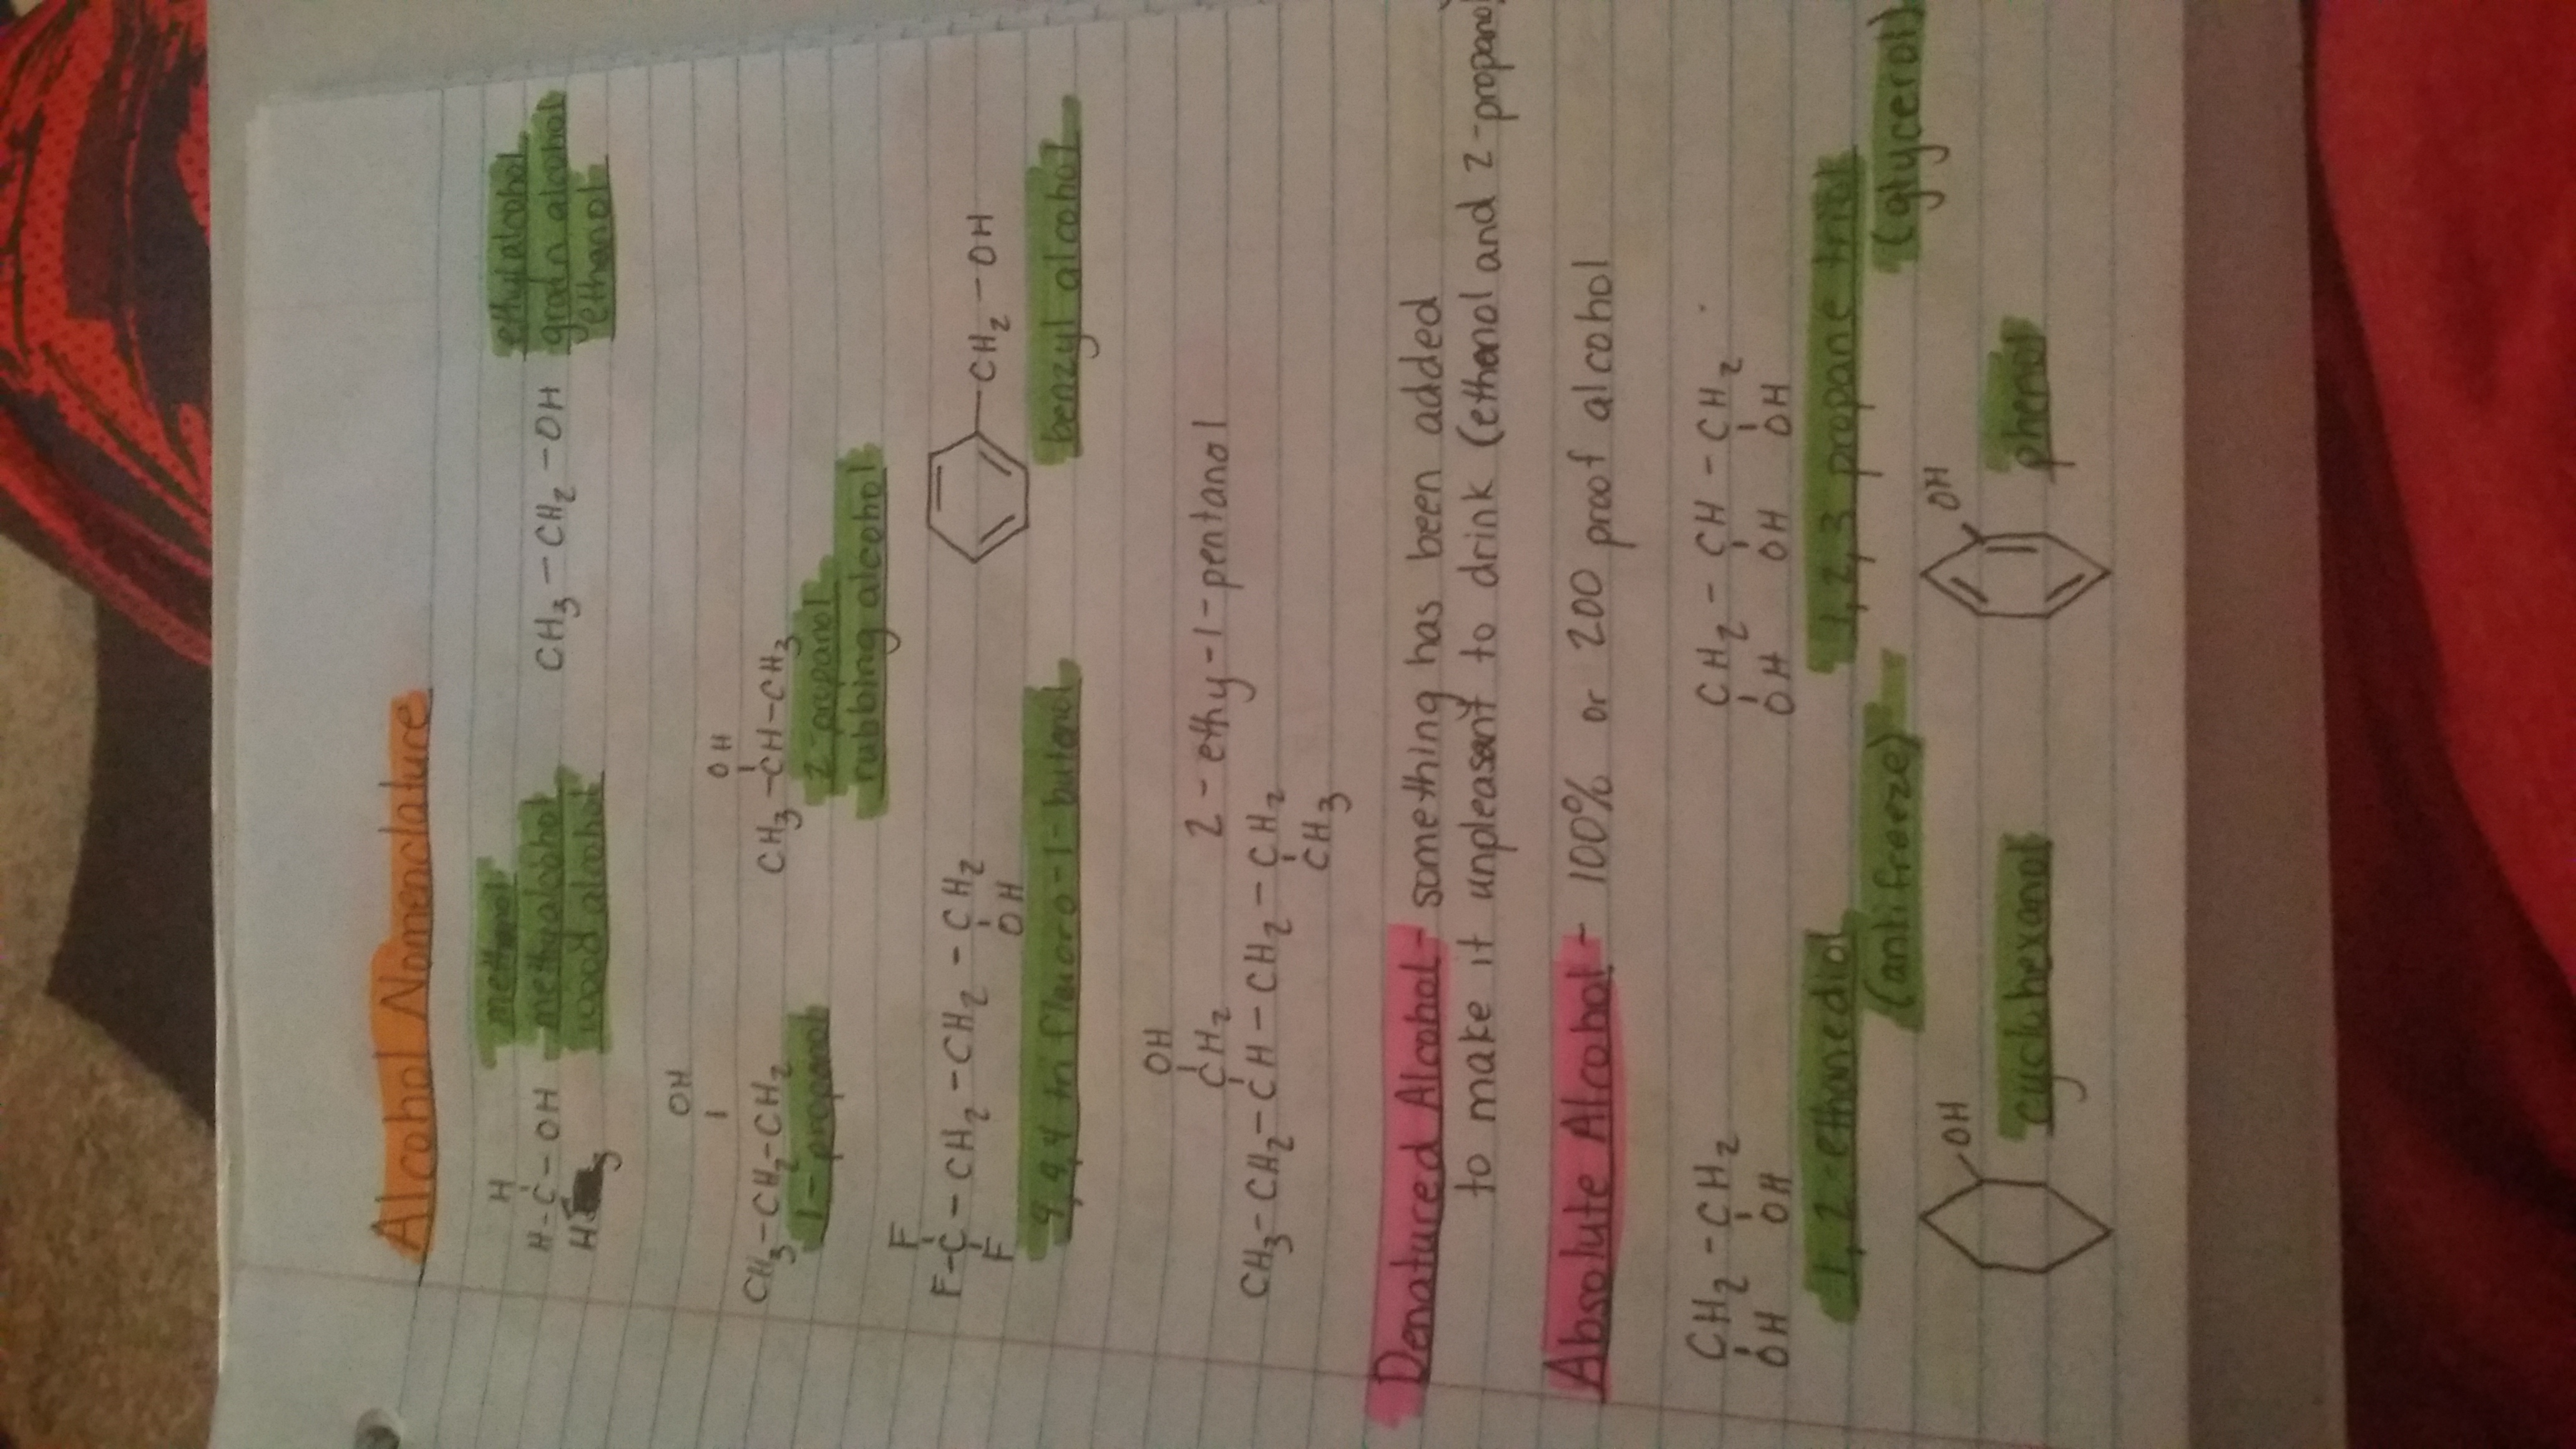 Alcohol Nomenclature
H
H-C-OH
H
methanol
methyl alcohol
wood alcohol
CH3-CH2-OH
ethyl alcohol
grain alcohol
ethanol
OH
CH3-CH2-CH2
1-propanol
OH
CH3-CH-CH3
2-propanol
rubbing alcohol
F
F-C-CH2-CH2-CH2
F OH
4,4,4 trifluoro-1-butanol
CH2-OH
benzyl alcohol
OH
CH2
CH3-CH2-CH-CH2-CH2
CH3
2-ethy-1-pentanol
Denatured Alcohol - something has been added
to make it unpleasant to drink (ethanol and 2-propanol)
Absolute Alcohol - 100% or 200 proof alcohol
CH2-CH2
OH OH
1,2-ethanediol
(antifreeze)
CH2-CH-CH2
OH OH OH
1,2,3 propane triol
(glycerol)
OH
cyclohexanol
OH
phenol